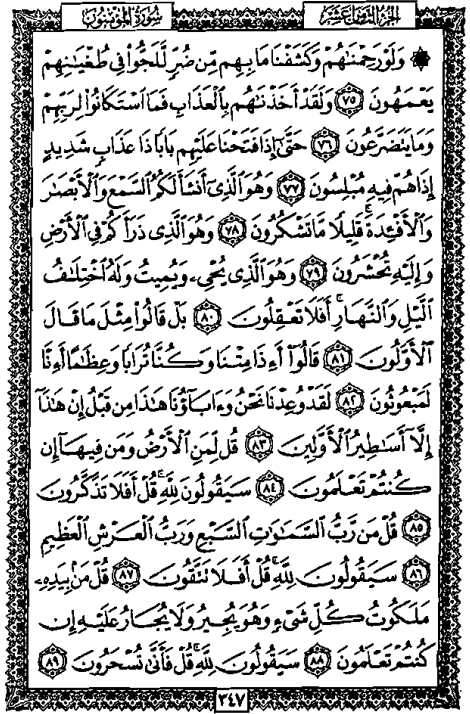 سُورَةُ المُؤْمِنُونَ الجُزْءُ الثَّامِنَ عَشَرَ
۞ وَلَوْ رَحِمْنَٰهُمْ وَكَشَفْنَا مَا بِهِم مِّن ضُرٍّ لَّلَجُّوا۟ فِى طُغْيَٰنِهِمْ
يَعْمَهُونَ ﴿٧٥﴾ وَلَقَدْ أَخَذْنَٰهُم بِٱلْعَذَابِ فَمَا ٱسْتَكَانُوا۟ لِرَبِّهِمْ
وَمَا يَتَضَرَّعُونَ ﴿٧٦﴾ حَتَّىٰٓ إِذَا فَتَحْنَا عَلَيْهِم بَابًا ذَا عَذَابٍ شَدِيدٍ
إِذَا هُمْ فِيهِ مُبْلِسُونَ ﴿٧٧﴾ وَهُوَ ٱلَّذِىٓ أَنشَأَ لَكُمُ ٱلسَّمْعَ وَٱلْأَبْصَٰرَ
وَٱلْأَفْـِٔدَةَ ۚ قَلِيلًا مَّا تَشْكُرُونَ ﴿٧٨﴾ وَهُوَ ٱلَّذِى ذَرَأَكُمْ فِى ٱلْأَرْضِ
وَإِلَيْهِ تُحْشَرُونَ ﴿٧٩﴾ وَهُوَ ٱلَّذِى يُحْىِۦ وَيُمِيتُ وَلَهُ ٱخْتِلَٰفُ
ٱلَّيْلِ وَٱلنَّهَارِ ۚ أَفَلَا تَعْقِلُونَ ﴿٨٠﴾ بَلْ قَالُوا۟ مِثْلَ مَا قَالَ
ٱلْأَوَّلُونَ ﴿٨١﴾ قَالُوٓا۟ أَءِذَا مِتْنَا وَكُنَّا تُرَابًا وَعِظَٰمًا أَءِنَّا
لَمَبْعُوثُونَ ﴿٨٢﴾ لَقَدْ وُعِدْنَا نَحْنُ وَءَابَآؤُنَا هَٰذَا مِن قَبْلُ إِنْ هَٰذَآ
إِلَّآ أَسَٰطِيرُ ٱلْأَوَّلِينَ ﴿٨٣﴾ قُل لِّمَنِ ٱلْأَرْضُ وَمَن فِيهَآ إِن
كُنتُمْ تَعْلَمُونَ ﴿٨٤﴾ سَيَقُولُونَ لِلَّهِ ۚ قُلْ أَفَلَا تَذَكَّرُونَ
﴿٨٥﴾ قُلْ مَن رَّبُّ ٱلسَّمَٰوَٰتِ ٱلسَّبْعِ وَرَبُّ ٱلْعَرْشِ ٱلْعَظِيمِ
﴿٨٦﴾ سَيَقُولُونَ لِلَّهِ ۚ قُلْ أَفَلَا تَتَّقُونَ ﴿٨٧﴾ قُلْ مَنۢ بِيَدِهِۦ
مَلَكُوتُ كُلِّ شَىْءٍ وَهُوَ يُجِيرُ وَلَا يُجَارُ عَلَيْهِ إِن
كُنتُمْ تَعْلَمُونَ ﴿٨٨﴾ سَيَقُولُونَ لِلَّهِ ۚ قُلْ فَأَنَّىٰ تُسْحَرُونَ ﴿٨٩﴾
٣٤٧